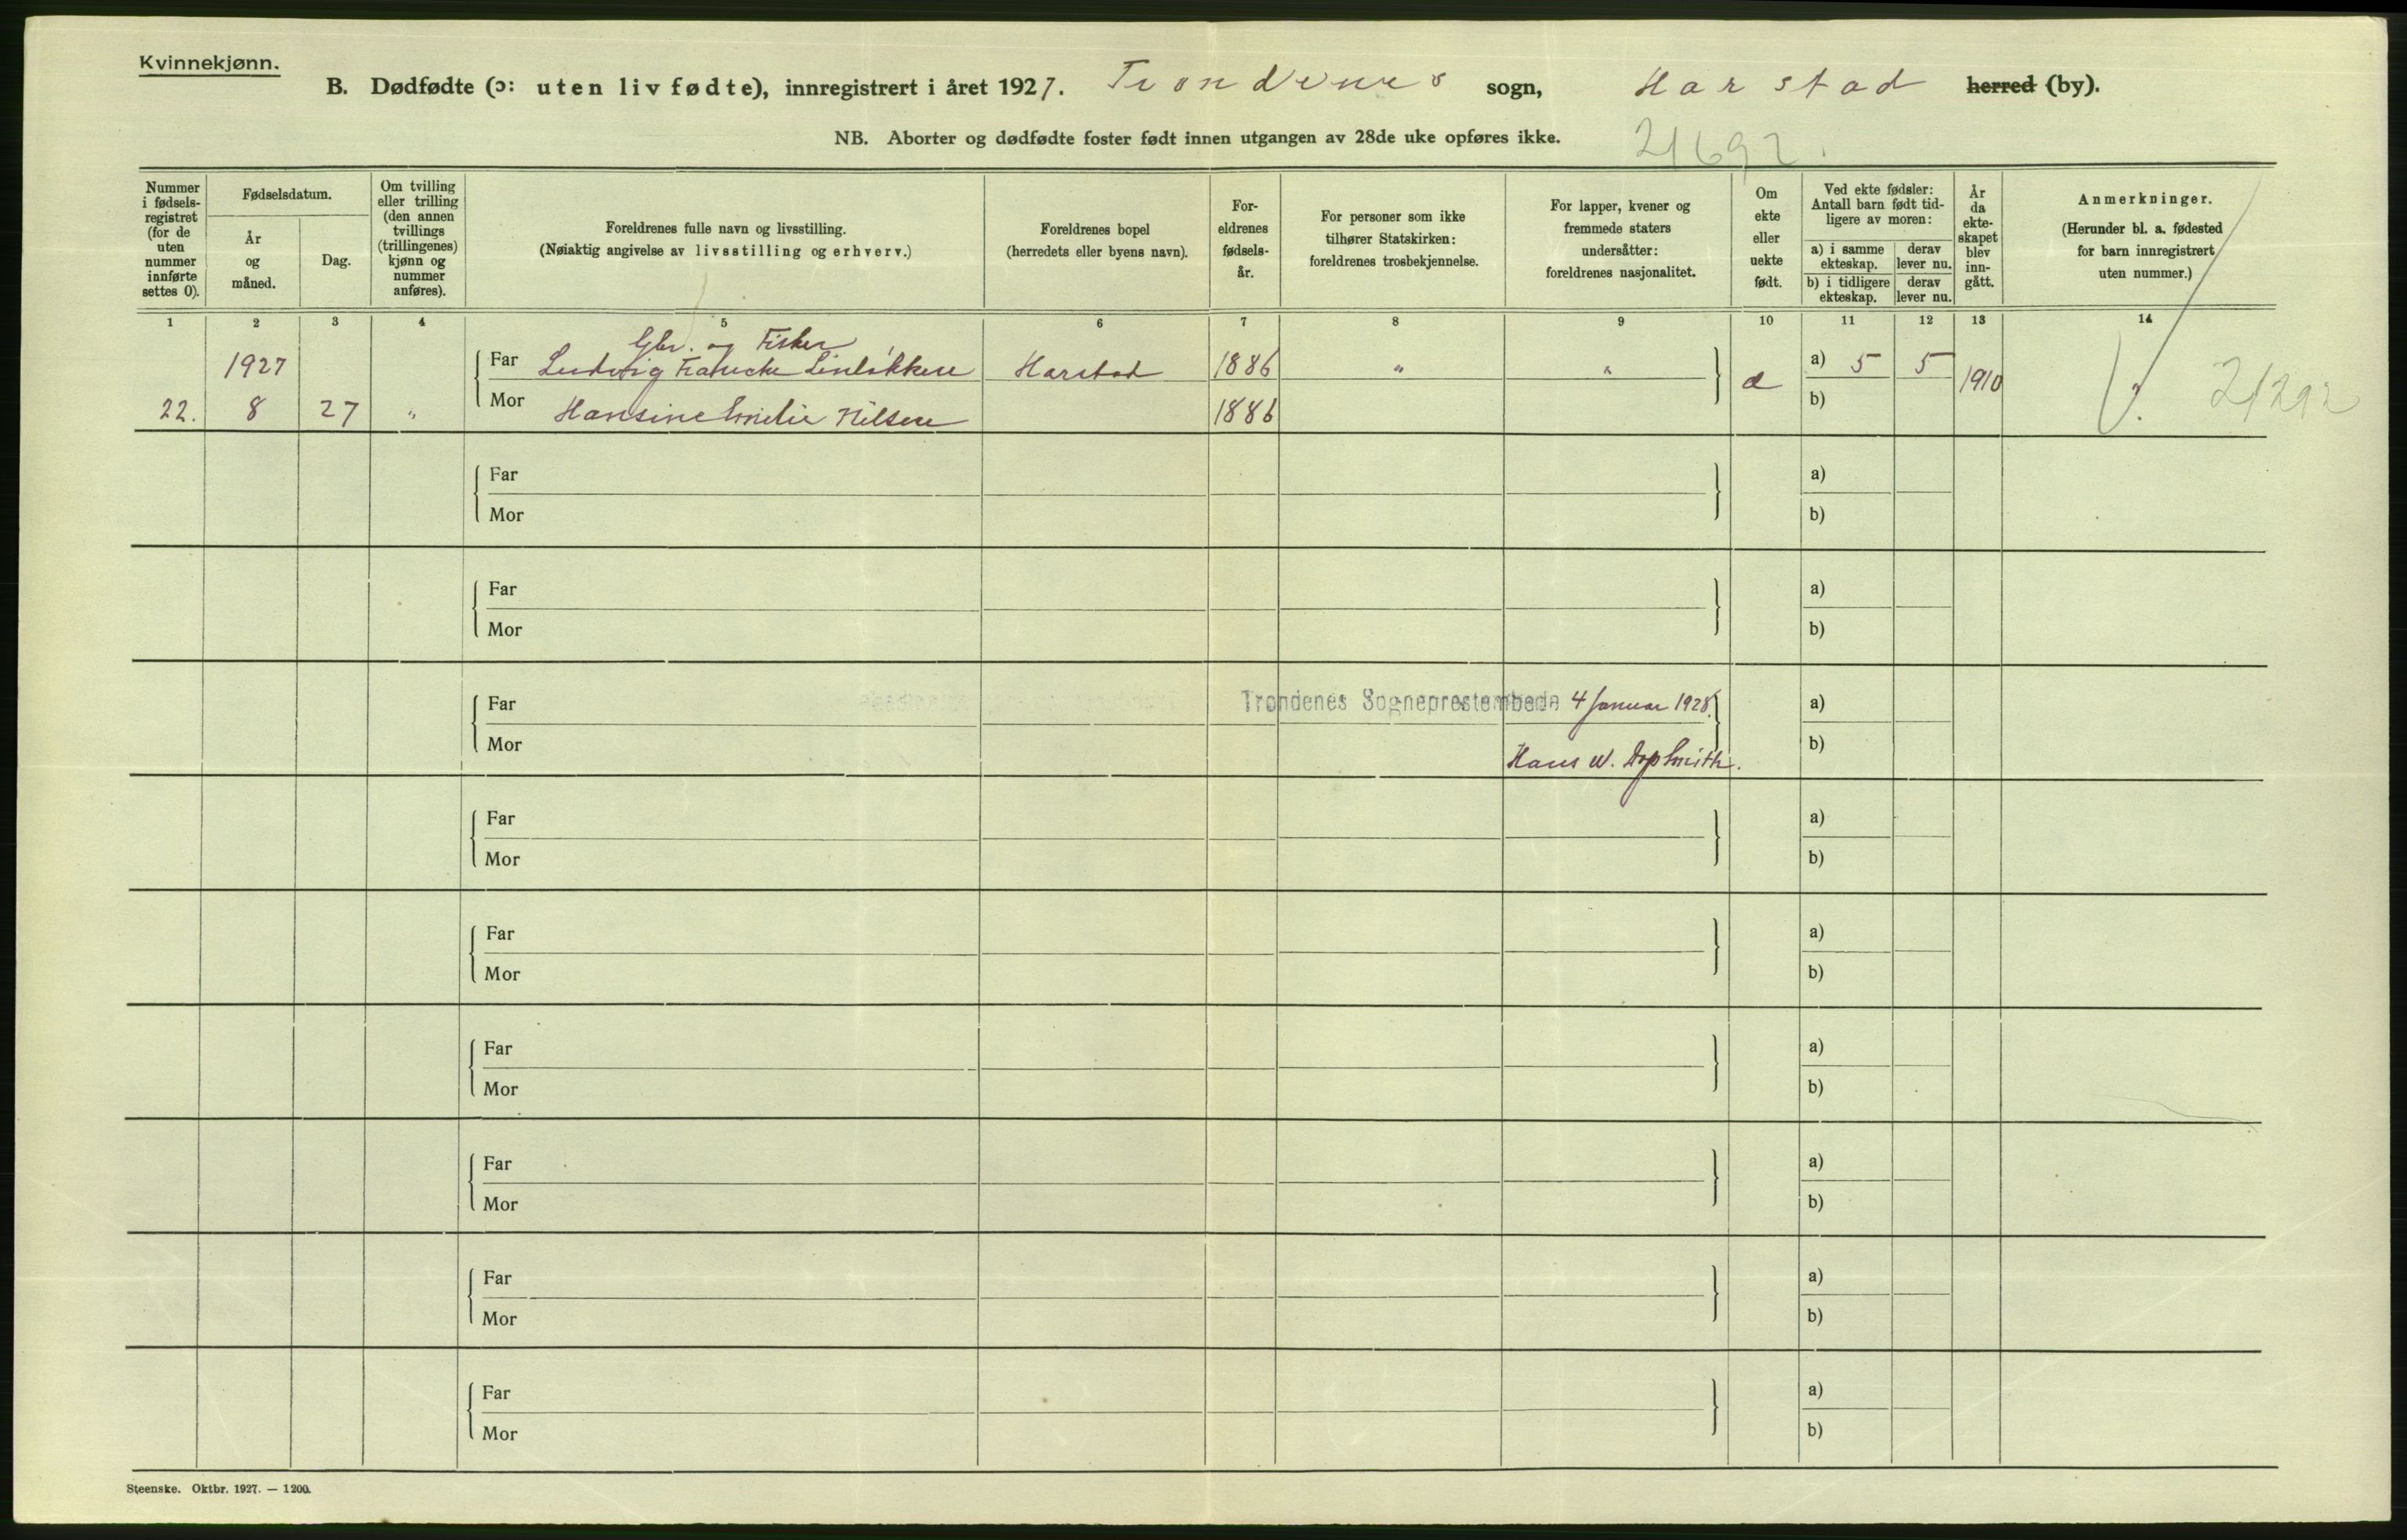 Kvinnekjønn.
B. Dødfødte (ɔ: uten liv fødte), innregistrert i året 1927. Trondenes sogn, Harstad herred (by).
NB. Aborter og dødfødte foster født innen utgangen av 28de uke opføres ikke.
21692.
Nummer i fødsels-registret (for de uten nummer innførte settes 0).
Fødselsdatum.
År og måned.
Dag.
Om tvilling eller trilling (den annen tvillings (trillingenes) kjønn og nummer anføres).
Foreldrenes fulle navn og livsstilling.
(Nøiaktig angivelse av livsstilling og erhverv.)
Foreldrenes bopel
(herredets eller byens navn).
For-eldrenes fødsels-år.
For personer som ikke tilhører Statskirken: foreldrenes trosbekjennelse.
For lapper, kvener og fremmede staters undersåtter: foreldrenes nasjonalitet.
Om ekte eller uekte født.
Ved ekte fødsler: Antall barn født tid-ligere av moren:
a) i samme ekteskap.
derav lever nu.
b) i tidligere ekteskap.
derav lever nu.
År da ekte-skapet blev inn-gått.
Anmerkninger.
(Herunder bl. a. fødested for barn innregistrert uten nummer.)
1 2 3 4 5 6 7 8 9 10 11 12 13 14
Gbr. og Fisker
1927 Far Ludvig Harstad 1886 " " a) 5 5 1910
22. 8 27 " Mor Hansine Emelie Nilsen 1886 b)
21292
Far a)
Mor b)
Far a)
Mor b)
Far Trondenes Sogneprestembede 4 Januar 1928. a)
Mor b)
Hans W.
Far a)
Mor b)
Far a)
Mor b)
Far a)
Mor b)
Far a)
Mor b)
Far a)
Mor b)
Far a)
Mor b)
Steenske. Oktbr. 1927. — 1200.